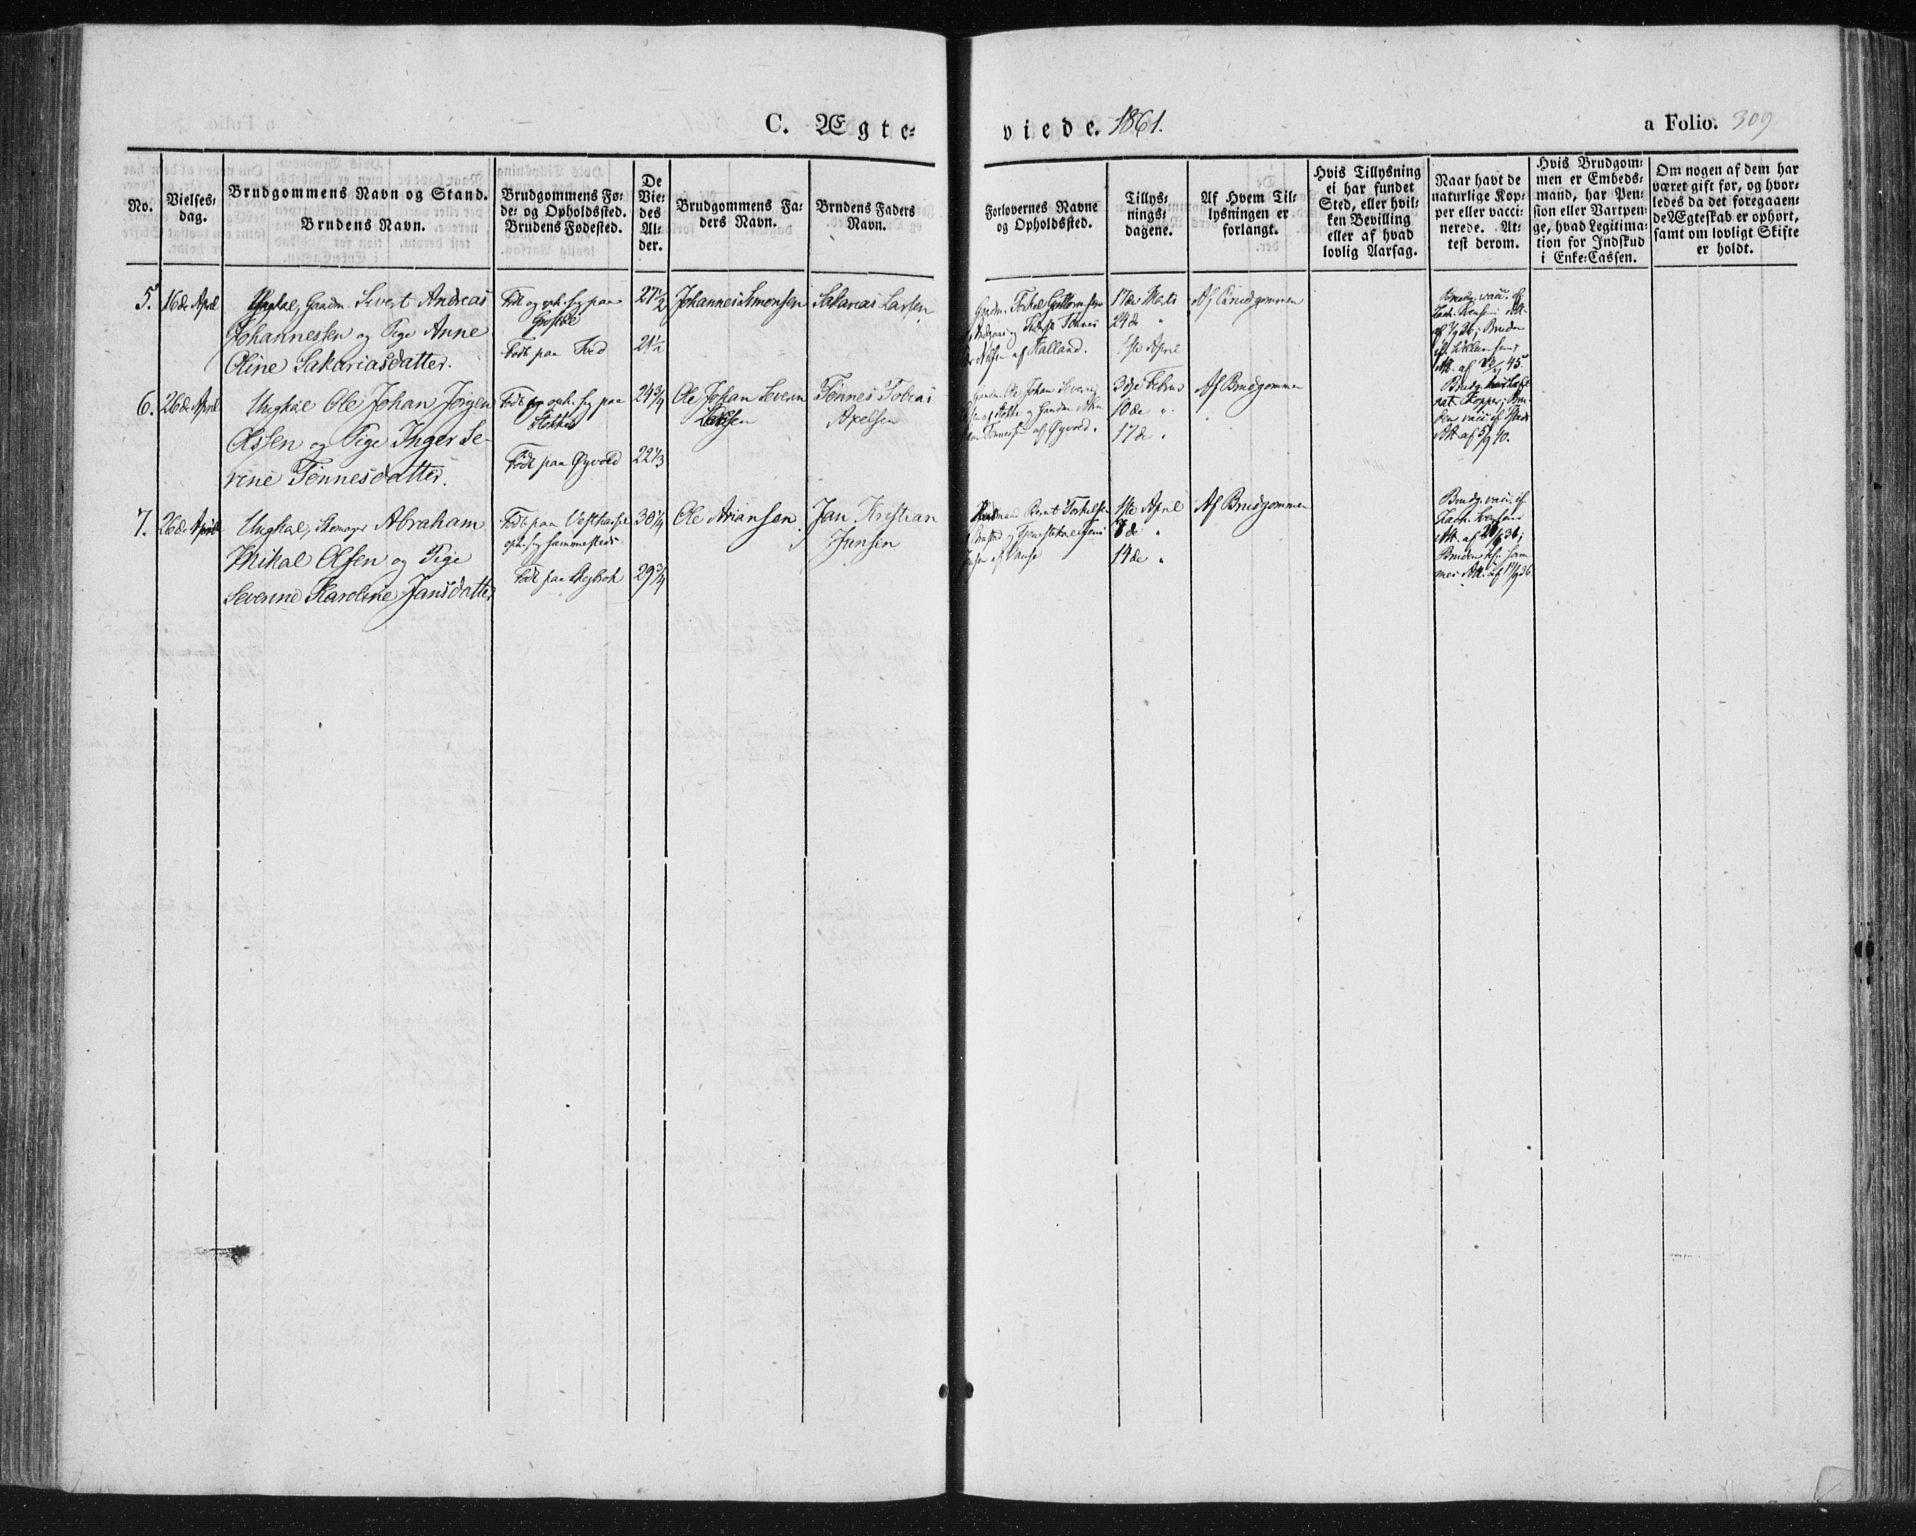 C. Ægte-
viede. 1861.
a Folio. 309
No.
Vielses-
dag.
Brudgommens Navn og Stand.
Brudens Navn.
Brudgommens Fø-
de- og Opholdssted.
Brudens Fødested.
De
Vie-
des
Al-
der.
Brudgommens Fa-
ders Navn.
Brudens Faders
Navn.
Forlovernes Navne
og Opholdssted.
Tillys-
nings-
dagene.
Af Hvem Til-
lysningen er
forlangt.
Hvis Tillysning
ei har fundet
Sted, eller hvil-
ken Bevilling
eller af hvad
lovlig Aarsag.
Naar havt de
naturlige Kop-
per eller vacci-
nerede. At-
test derom.
Hvis Brudgom-
men er Embeds-
mand, har Pen-
sion eller Vartpen-
ge, hvad Legitima-
tion for Indskud
i Enke-Cassen.
Om nogen af dem har
været gift før, og hvor-
ledes da det foregaaen-
de Ægteskab er ophørt,
samt om lovligt Skifte
er holdt.
5.
16de April
Ungkal, Gaardm. Sivert Andreas
Johannessen og Pige Anne
Oline Sakariasdatter.
Født og oph. sig paa
Født paa
27½
21½
Johannes Simonsen
Sakarias Larsen
Gaardm.
af Kalland.
17de Marts
24de "
1ste April
Af Brudgommen
Brudg. vacc. af
Att.
Bruden
Att. af 45
6.
26de April
Ungkal Ole Johan Jørgen
Olsen og Pige Inger Se-
rine Tønnesdatter.
Født og oph. sig paa
Stokke
Født paa Øyvold
24¾
22⅓
Ole Johan Severin
Tønnes Tobias
Axelsen
Gaardm. Ole Johan Severin
af Stokke og Gaardm.
Tønnessen af Øyvold.
3die Febru
10de "
17de "
Af Brudgommen
Brudg. havt de
nat. Kopper; Bru-
den vacc. af
Att. af 5/9 40.
7.
26de April
Ungkal, Skomager Abraham
Mikal Olsen og Pige
Severine Karoline Jansdatter
Født paa Vesthasse
oph. sig sammesteds
Født paa
30¼
29¾
Ole Ariansen
Jan Kristian
Jensen
Bernt Torkelsen
og
af Vanse
1ste April
7de "
14de "
Af Brudgommen
Brudg. vacc. af
Att. af 36;
Bruden af sam-
mes Att. af 36